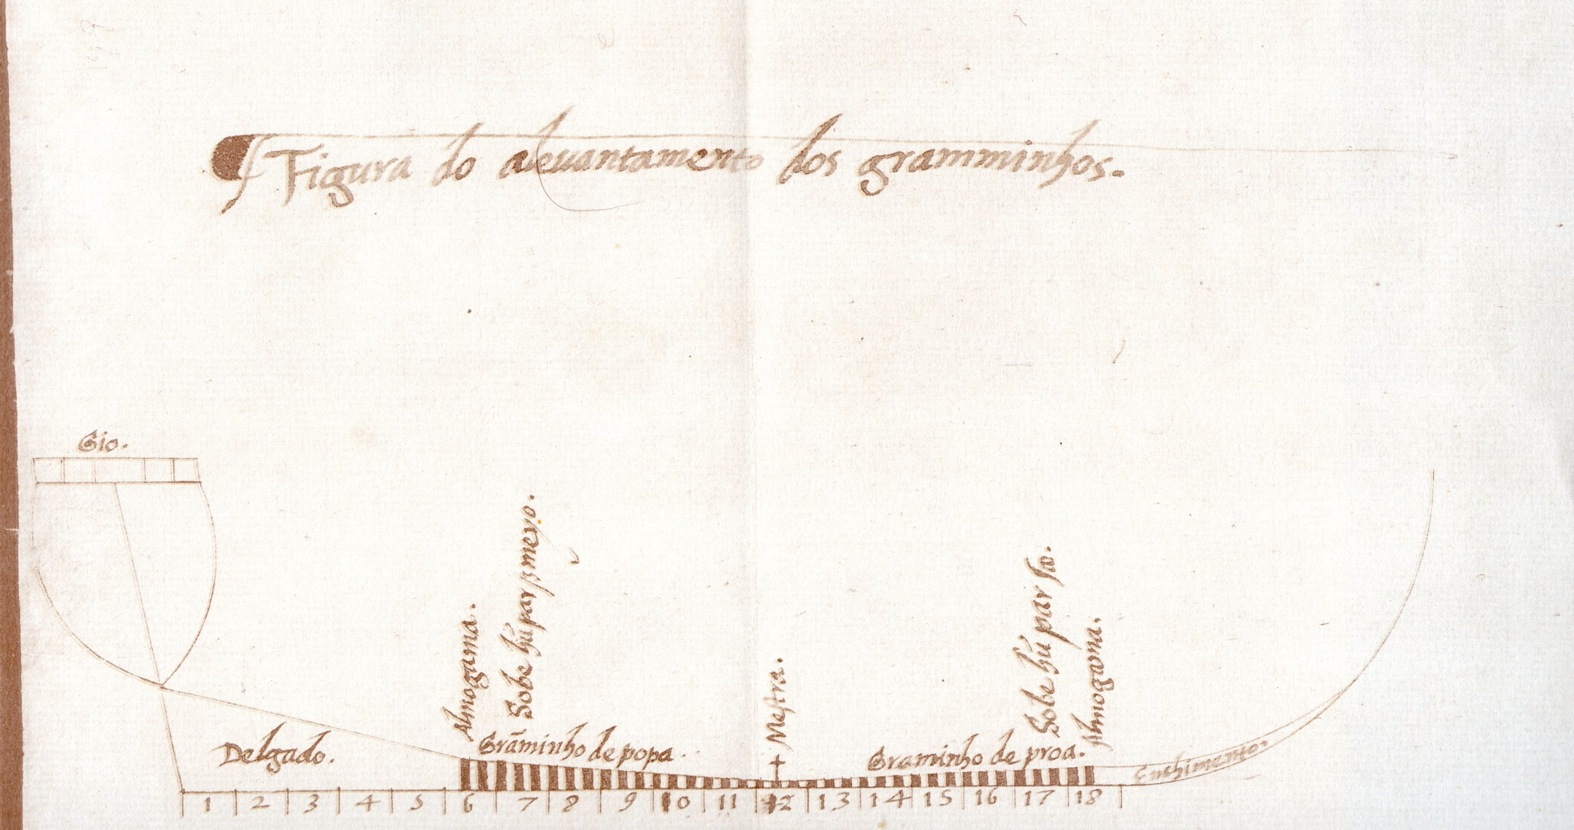 Figura do aleuantamento dos gramminhos.
Gio.
Almogama.
Sobe hũ par & meyo.
Mestra.
Sobe hũ par so.
Almogama.
Delgado.
Grãminho de popa.
Graminho de proa.
Enchimento.
1 2 3 4 5 6 7 8 9 10 11 12 13 14 15 16 17 18